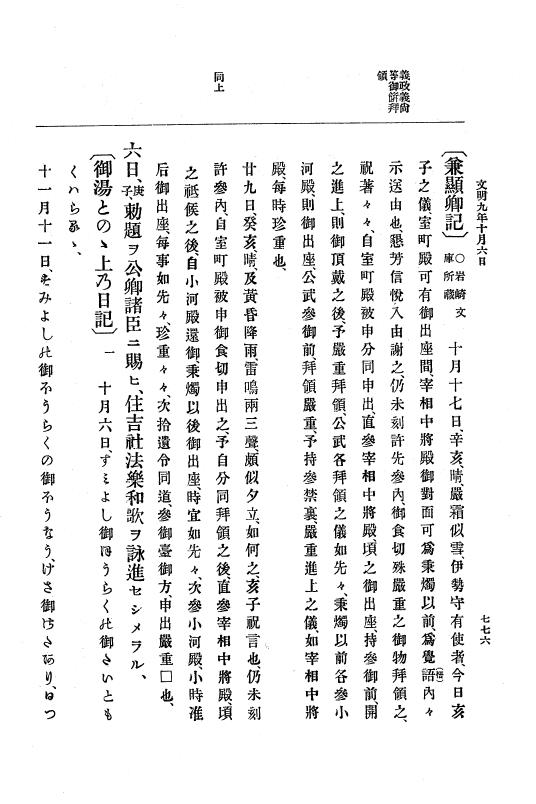 文明九年十月六日
七七六
義政義尚
等御餅拜
領
同上
〔兼顯卿記〕〇岩崎文庫所藏 十月十七日、辛亥、晴、嚴霜似雪、伊勢守有使者、今日亥
子之儀、室町殿可有御出座間、宰相中將殿御對面可爲秉燭以前、爲覺語(悟)內々
示送由也、懇芳信悅入由謝之、仍未刻許先參內、御食切殊嚴重之御物拜領之、
祝著々々、自室町殿被申分同申出、直參宰相中將殿、頃之御出座、持參御前、開
之進上、則御頂戴之後、予嚴重拜領、公武各拜領之儀如先々、秉燭以前各參小
河殿、則御出座、公武參御前、拜領嚴重、予持參禁裏嚴重進上之儀、如宰相中將
殿、每時珍重也、
廿九日、癸亥、晴、及黃昏降雨、雷鳴兩三聲、頗似夕立、如何之、亥子祝言也、仍未刻
許參內、自室町殿被申御食切申出之、予自分同拜領之後、直參宰相中將殿、頃
之祗候之後、自小河殿還御、秉燭以後御出座、時宜如先々、次參小河殿、小時准
后御出座、每事如先々、珍重々々、次拾遺令同道、參御臺御方、申出嚴重□也、
六日、庚子、勅題ヲ公卿諸臣ニ賜ヒ、住吉社法樂和歌ヲ詠進セシメラル、
〔御湯とのゝ上乃日記〕一 十月六日、すミよし御ほうらく此御さいとも
くハらるゝ、
十一月十一日、そみよし此御ふうらくの御ふうなう、けさ御けさあり、ほつ